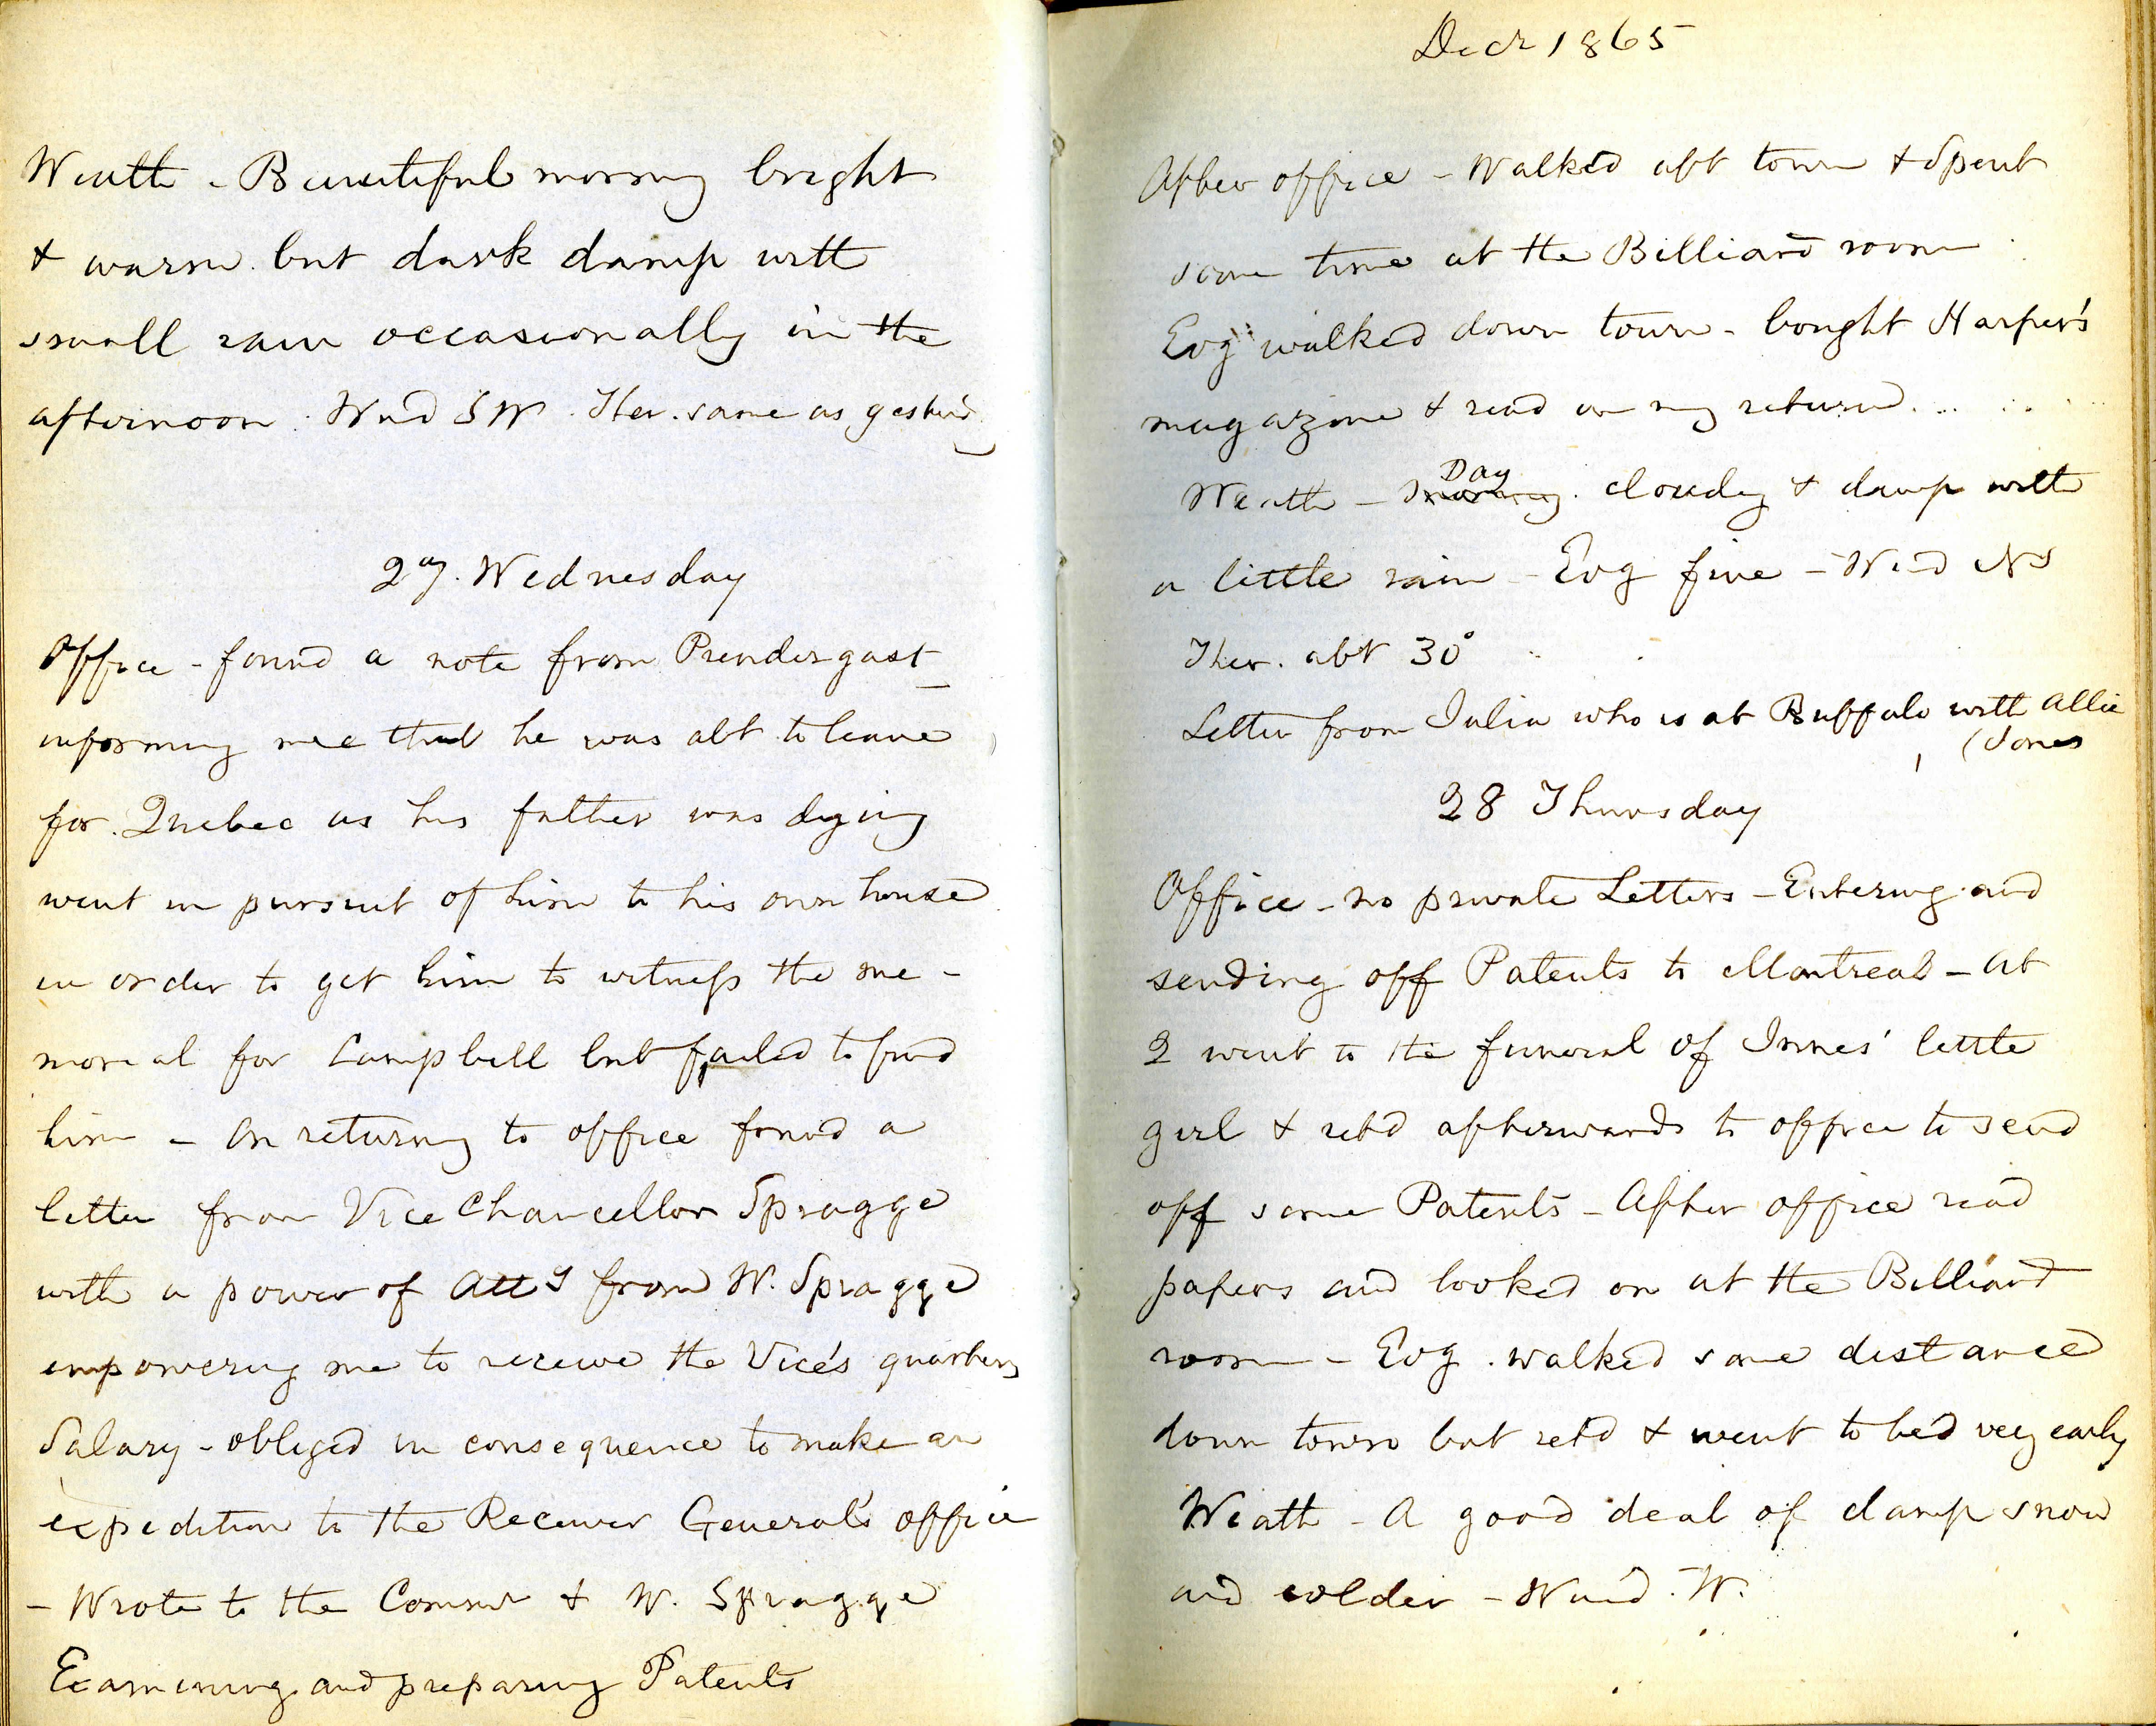 Weath - Beautiful morning bright
& warm. but dark damp with
small rain occasionally in the
afternoon. Wind SW. Ther. same as yesterd
27. Wednesday
Office - found a note from Prendergast
informing me that he was abt to leave
for Quebec as his father was dying
went in pursuit of him to his own house
in order to get him to witness the me-
morial for Campbell but failed to find
him - On returning to office found a
letter from Vice Chancellor Spragge
with a power of Atty from W. Spragge
empowering me to receive the Vice's quarters
Salary - obliged in consequence to make an
expedition to the Receiver General's office
- Wrote to the Commr & W. Spragge
Examining and preparing Patents
Decr 1865
After office - Walked abt town & Spent
some time at the Billiard room
Evg walked down town - bought Harper's
magazine & read on my return....
Day
Weath - morning. cloudy & damp with
a little rain - Evg fine - Wind
Ther. abt 30°
Letter from Julia who is at Buffalo with Allie
(Jones
28 Thursday
Office - no private Letters - Entering and
sending off Patents to Montreal - At
2 went to the funeral of Innes' little
girl & retd afterwards to office to send
off some Patents - After office read
papers and looked on at the Billiard
room - Evg. walked some distance
down town but retd & went to bed very early
Weath - A good deal of damp snow
and colder - Wind. W.